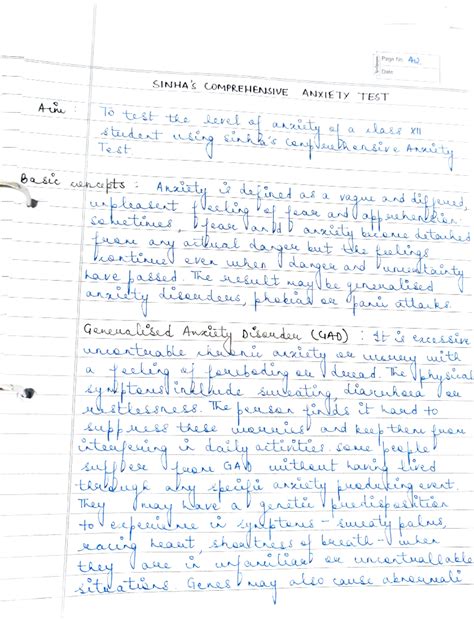 Page No. 40
Date
SINHA'S COMPREHENSIVE ANXIETY TEST
Aim : To test the level of anxiety of a class XII
student using sinha's comprehensive Anxiety
Test
Basic concepts : Anxiety is defined as a vague and diffused,
unpleasent feeling of fear and apprehension.
sometimes, fear and anxiety become detached
from any actual danger but the feelings
continue even when danger and uncertainty
have passed. The result may be generalised
anxiety disorders, phobias or panic attacks.
Generalised Anxiety Disorder (GAD) : It is excessive
chronic anxiety or worry with
a feeling of foreboding or dread. The physical
symptoms include sweating, diarrhoea or
restlessness. The person finds it hard to
suppress these worries and keep them from
interfering in daily activities. some people
suffer from GAD without having lived
through any specific anxiety producing event.
They may have a genetic predisposition
to experience in symptoms - sweaty palms,
racing heart, shortness of breath - when
they are in unfamiliar or uncontrollable
situations. Genes may also cause abnormali